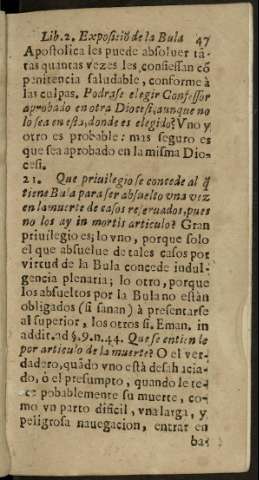 Lib.2. Exposiciõ de la Bula 47
Apostolica les puede absoluer tã-
tas quantas vezes les confiessan cõ
penitencia saludable, conforme à
las culpas. Podrase elegir Confessor
aprobado en otra Diocesi, aunque no
lo sea en esta, donde es elegido? Vno y
otro es probable: mas seguro es
que sea aprobado en la misma Dio-
cesi.
21. Que priuilegio se concede al q̃
tiene Bula para ser absuelto vna vez
en la muerte de casos reseruados, pues
no los ay in mortis articulo? Gran
priuilegio es; lo vno, porque solo
el que absuelue de tales casos por
virtud de la Bula concede indul-
gencia plenaria; lo otro, porque
los absueltos por la Bula no estàn
obligados (si sanan) à presentarse
al superior, los otros si. Eman. in
addit. ad §.9.n.44. Que se entiende
por articulo de la muerte? O el ver-
dadero, quãdo vno està desahucia-
do, ò el presumpto, quando se te-
me pobablemente su muerte, co-
mo vn parto dificil, vna larga, y
peligrosa nauegacion, entrar en
ba-